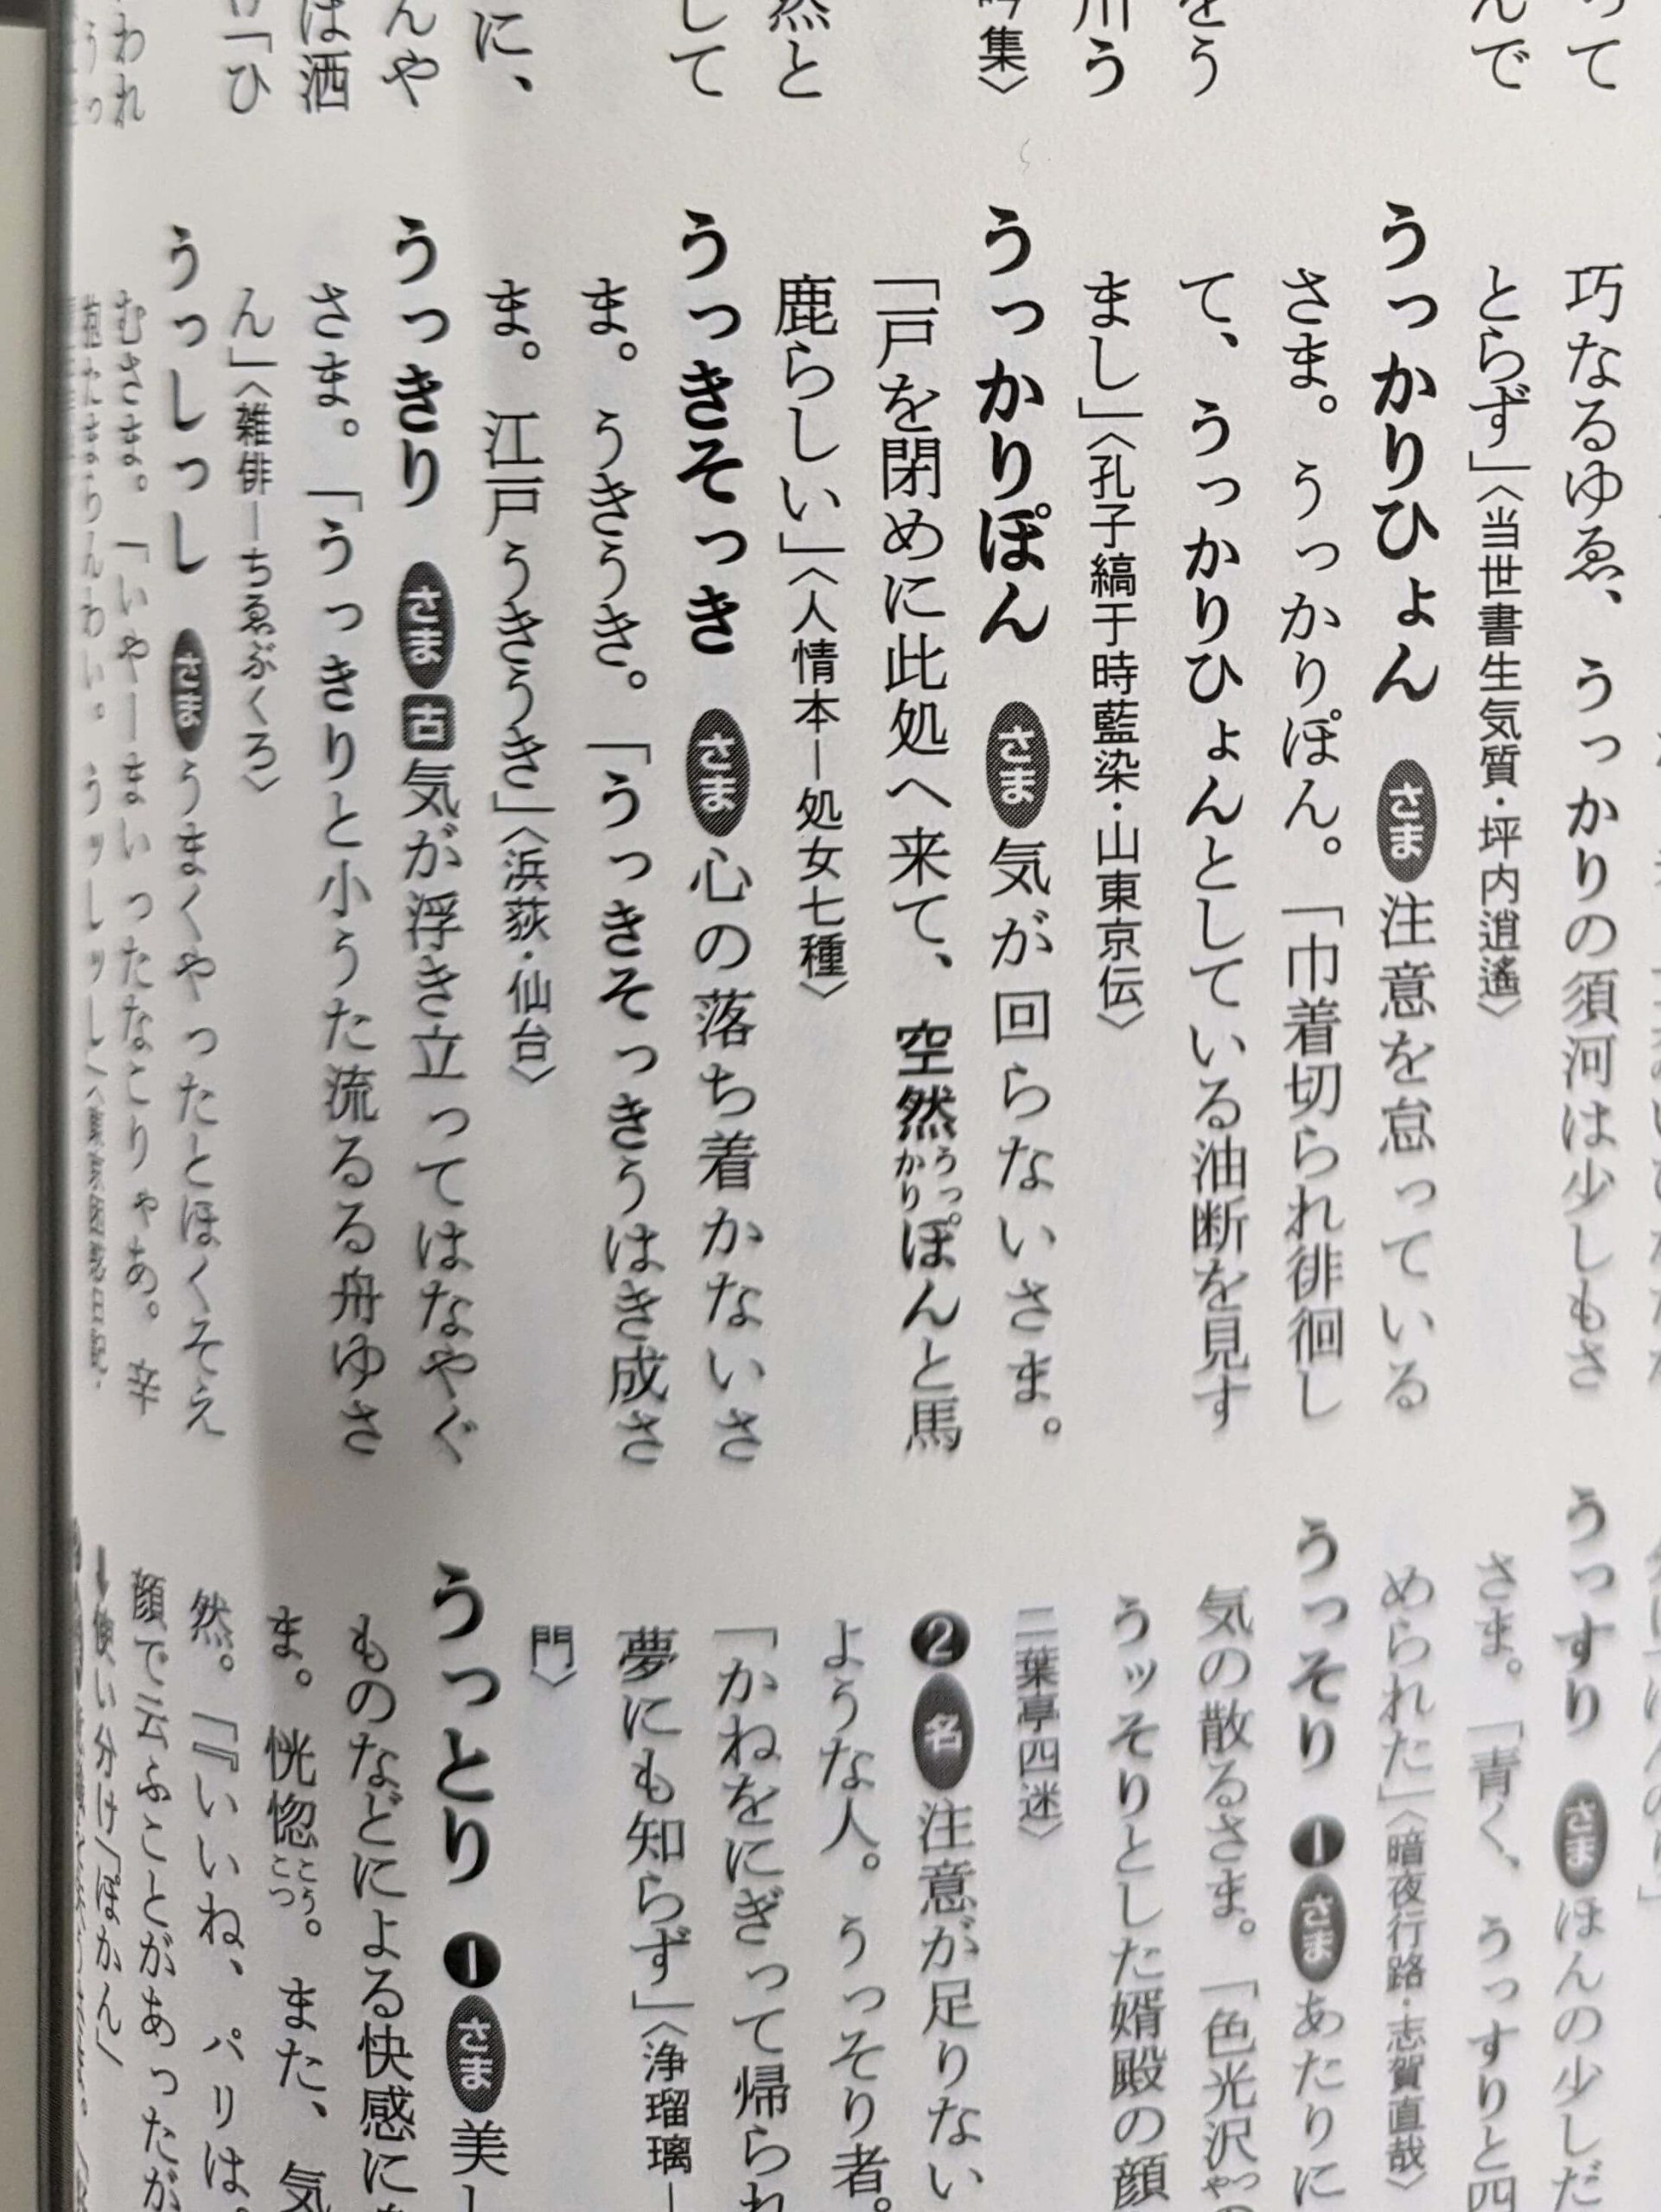 って
んで
をう
川う
吟集〉
然と
して
に、
んや
は洒
「ひ
われ
巧なるゆゑ、うっかりの須河は少しもさ
とらず」〈当世書生気質・坪内逍遙〉
うっかりひょん さま 注意を怠っている
さま。うっかりぽん。「巾着切られ徘徊し
て、うっかりひょんとしている油断を見す
まし」〈孔子縞于時藍染・山東京伝〉
うっかりぽん さま 気が回らないさま。
「戸を閉めに此処へ来て、空然うっかりぽんと馬
鹿らしい」〈人情本―処女七種〉
うっきそっき さま 心の落ち着かないさ
ま。うきうき。「うっきそっきうはき成さ
ま。江戸うきうき」〈浜荻・仙台〉
うっきり さま 古 気が浮き立ってはなやぐ
さま。「うっきりと小うた流るる舟ゆさ
ん」〈雑俳―ちゑぶくろ〉
うっしっし さま うまくやったとほくそえ
むさま。「いやーまいったなこりゃあ。辛
うっすり さま ほんの少しだ
さま。「青く、うっすりと四
められた」〈暗夜行路・志賀直哉〉
うっそり 1 さま あたりに
気の散るさま。「色光沢やつ
うッそりとした婿殿の顔
二葉亭四迷〉
2 名 注意が足りない
ような人。うっそり者。
「かねをにぎって帰られ
夢にも知らず」〈浄瑠璃―
門〉
うっとり 1 さま 美し
ものなどによる快感に
ま。恍惚こうこつ。また、気
然。「『いいね、パリは。
顔で云ふことがあったが
使い分け「ぽかん」